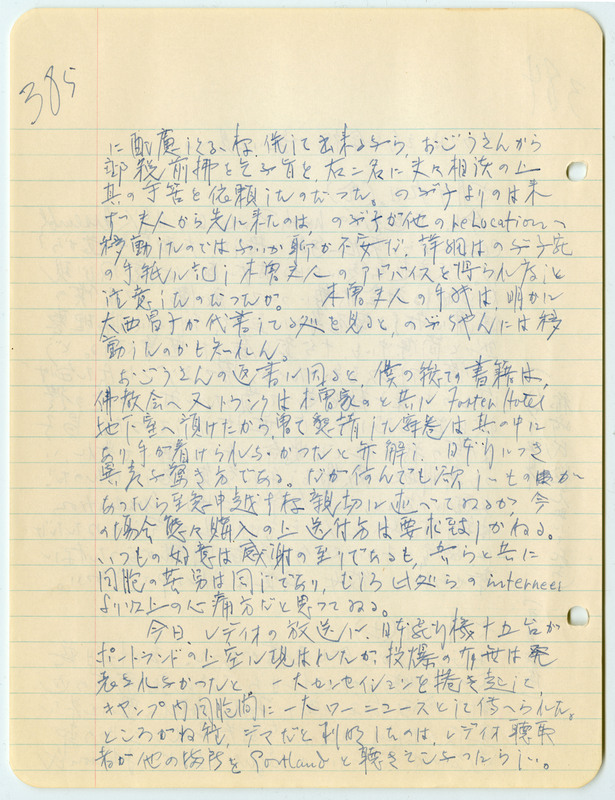 385
に配慮しくるゝ様、併して出来る丈ら、おごうさんから
郵税前拂を乞ふ旨と、右二名に夫々相談の上
其の手筈を依頼したのだった。のぶ子よりのは未
だ 夫人から先に来たのは、のぶ子が他のrelocationへ
移動したのではないか聊か不安だ、詳細はのぶ子宛
の手紙に記し 木曽夫人のアドバイスを得られ度しと
注意したのだったが。 木曽夫人の手紙は、明かに
大西昌子が代書してる処を見ると、のぶちゃんには移
動したのかも知れん。
おごうさんの返書に因ると、僕の総ての書籍は、
佛教会へ又トランクは木曽家のと共に Foster Hotel
地下室へ預けたから、曽て懇請した
あり、手が着けられなかったと弁解し、
驚き方である。だが何んでも欲しいものが
あったら至急申越す様親切に述べてゐるが、今
の場合態々購入の上送付方は要求致しかねる。
いつもの好意は感謝の至りであるも、吾らと共に
同胞の苦労は同じであり、むしろ此処らのinternees
より以上の心痛方だと思ってゐる。
今日、レデイオの放送に、日本飛行機十五台が
ポートランドの上空に現はれたが、投爆の有無は発
表されなかったと、一大センセイションを捲き起して、
キャンプ内同胞間に一大ワーニュースとして傳へられた。
ところがね我、デマだと判明したのは、レデイオ聴取
者が他の場所を Portland と聴きそこなったらしい。